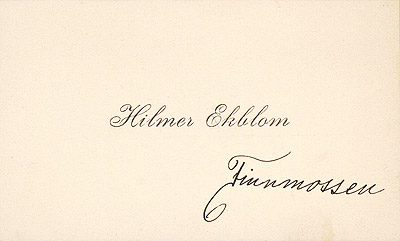 Hilmer Ekblom
Finnmossen